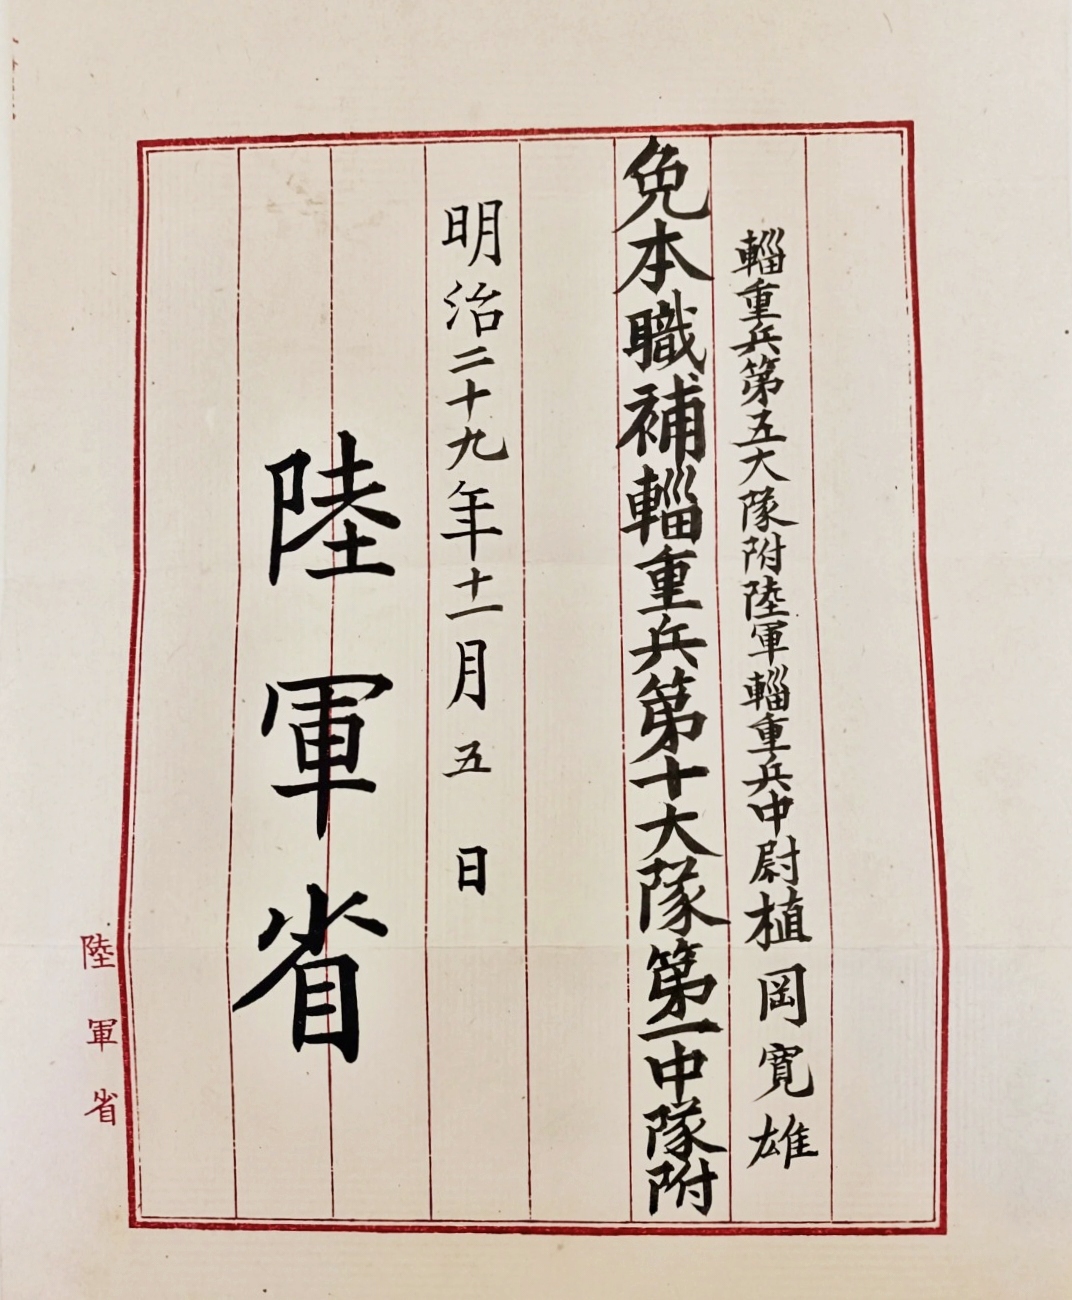 輜重兵第五大隊附陸軍輜重兵中尉植岡寛雄
免本職補輜重兵第十大隊第一中隊附
明治二十九年十一月五日
陸軍省
陸軍省